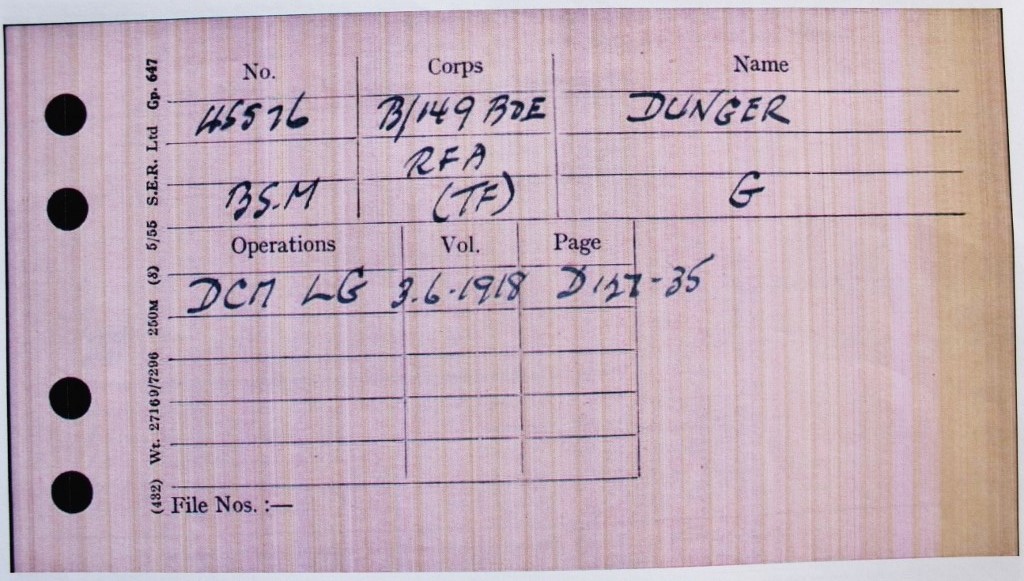 No. Corps Name
45576 B/149 BDE DUNGER
RFA
BS.M (TF) G
Operations Vol. Page
DCM LG 3.6.1918 D127-35
File Nos. :—
(432) Wt. 27169/7296 250M (8) 5/55 S.E.R. Ltd Gp. 647